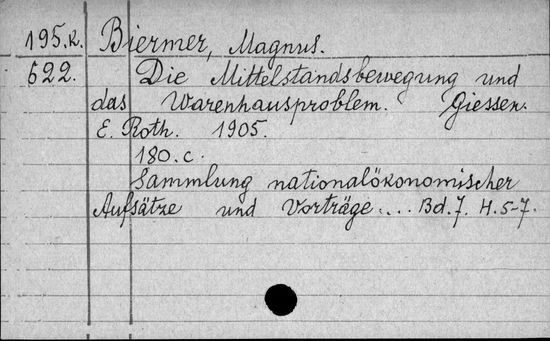 195.k. Biermer, Magnus.
622. Die Mittelstandsbewegung und
das Warenhausproblem. Giessen.
E. Roth. 1905.
180.c.
Sammlung nationalökonomischer
Aufsätze und Vorträge.... Bd.7. H.5-7.